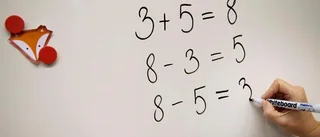 3 + 5 = 8
8 - 3 = 5
8 - 5 = 3
whiteboard